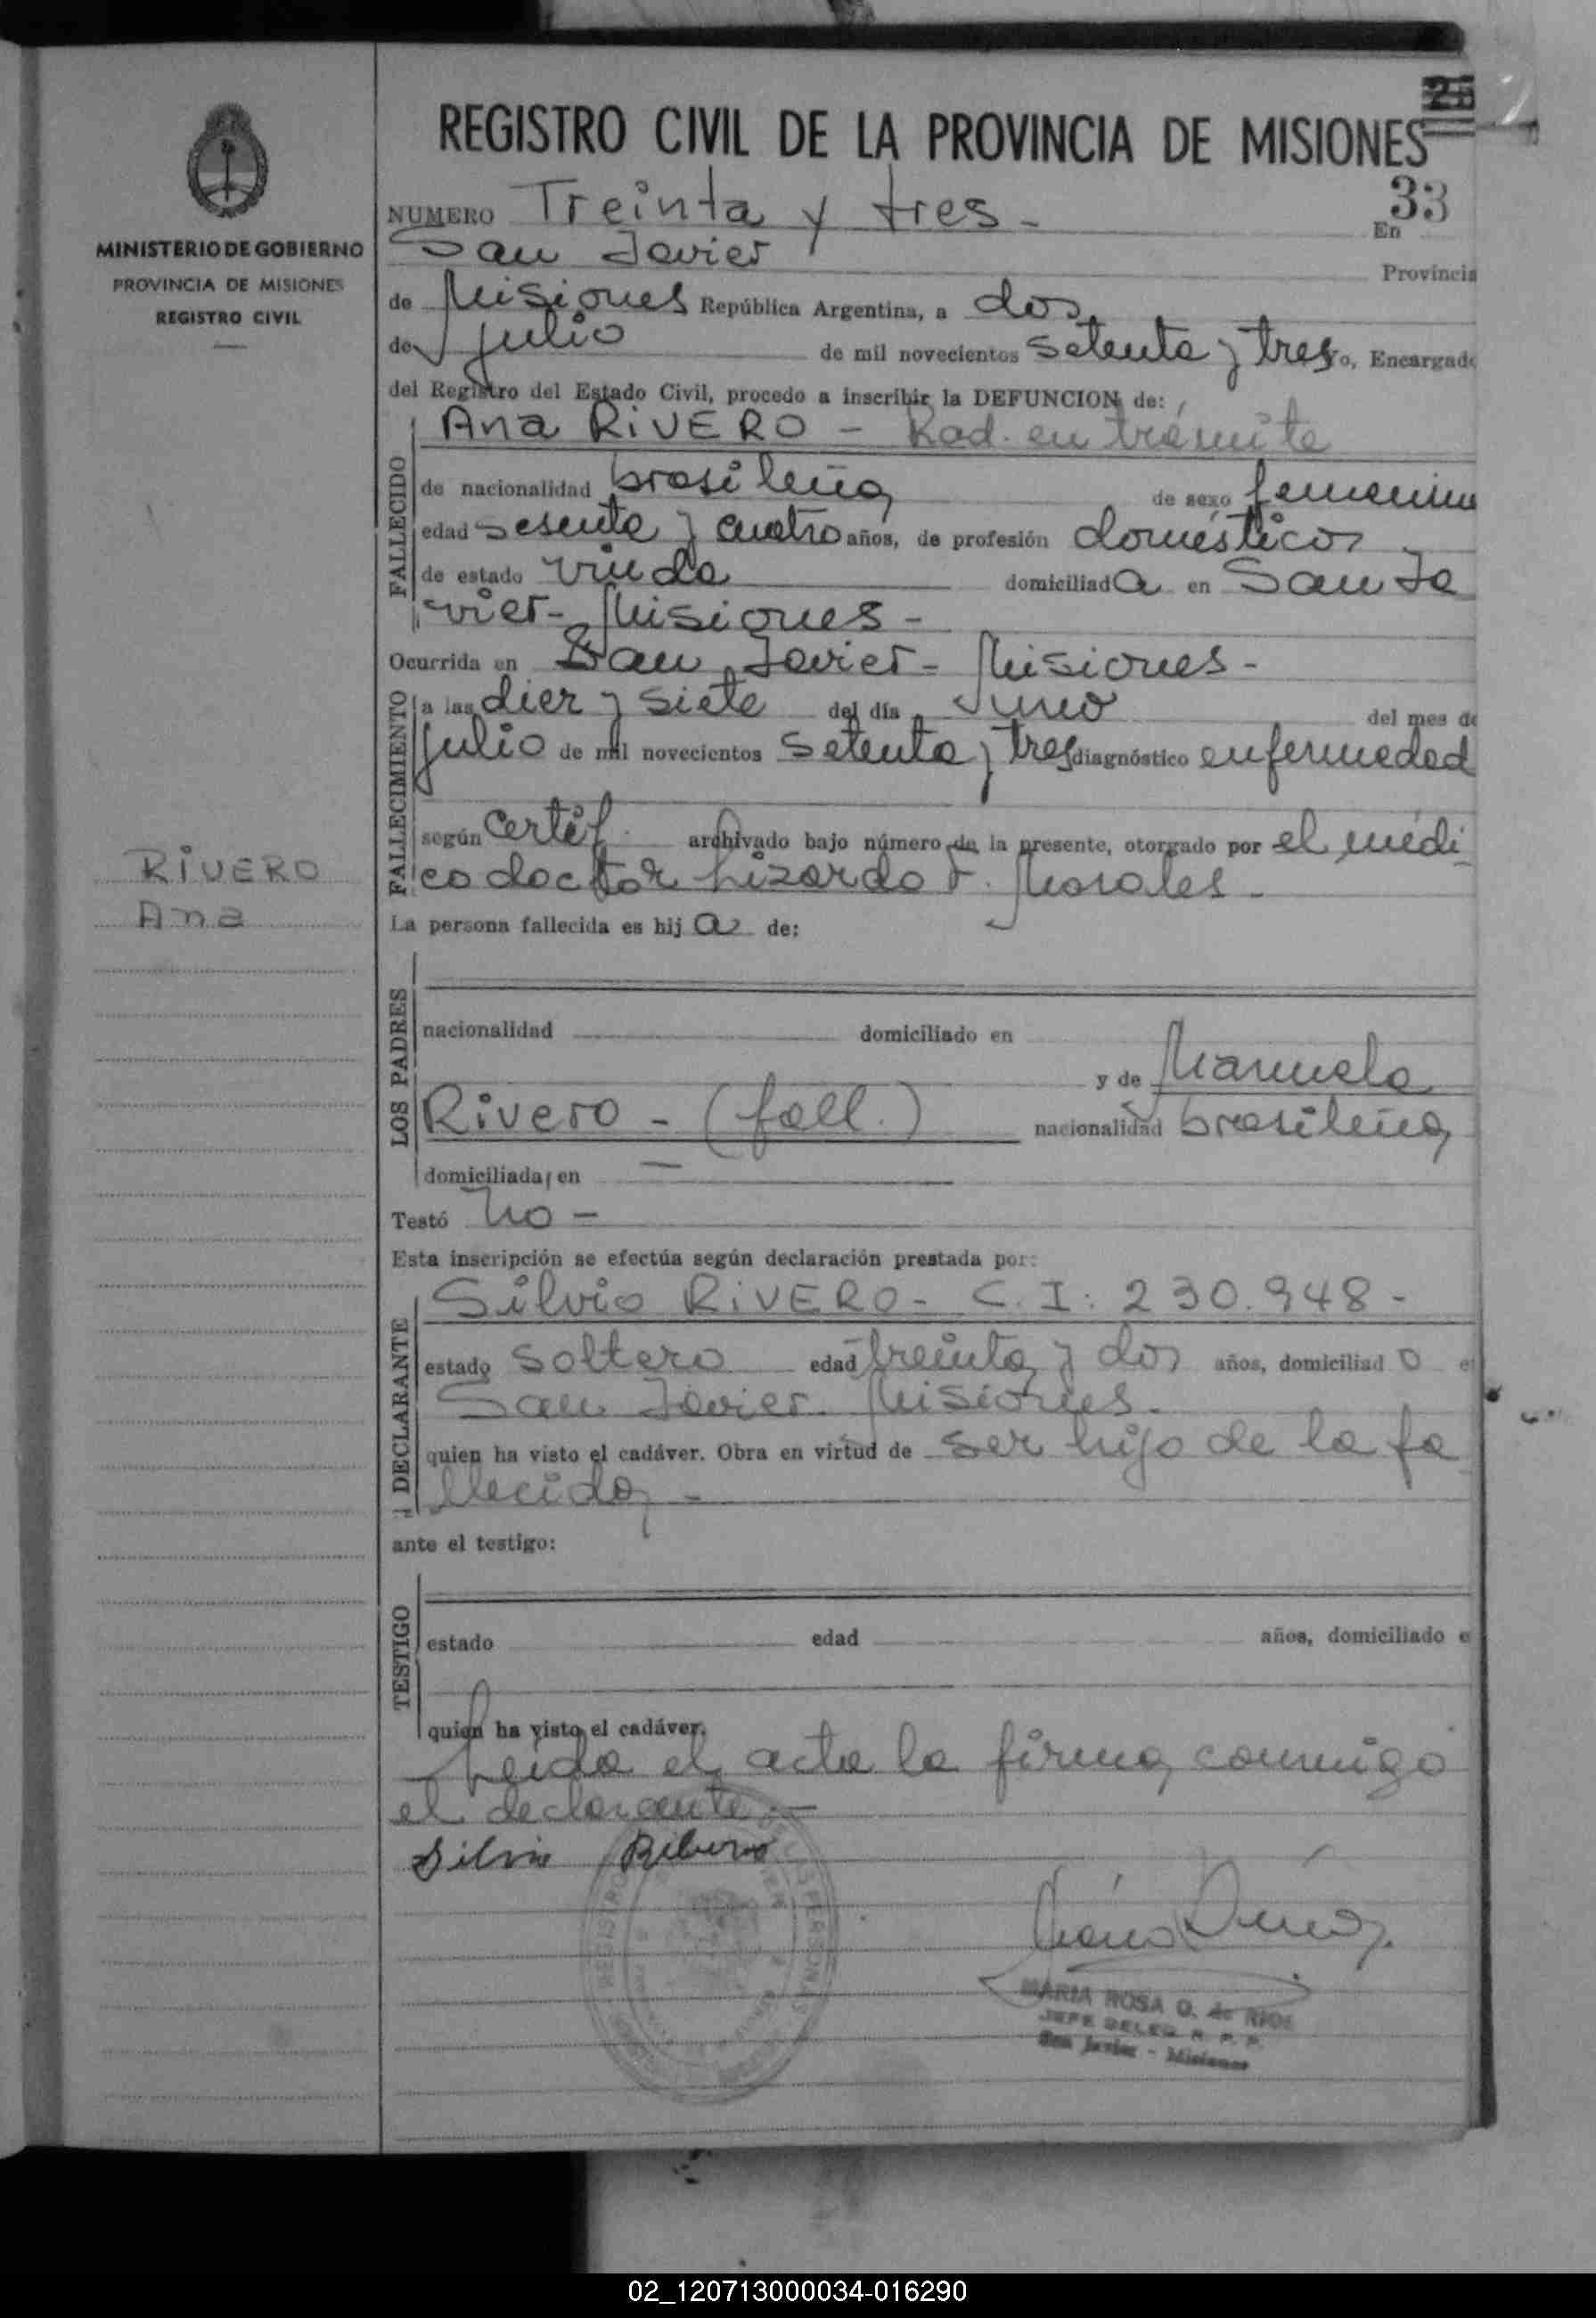 25
REGISTRO CIVIL DE LA PROVINCIA DE MISIONES
33
MINISTERIO DE GOBIERNO
PROVINCIA DE MISIONES
REGISTRO CIVIL
RIVERO
Ana
NUMERO Treinta y tres - En
San Javier Provincia
de Misiones República Argentina, a dos
de julio de mil novecientos setenta y tres Yo, Encargado
del Registro del Estado Civil, procedo a inscribir la DEFUNCION de:
Ana RIVERO - Rad. en trámite
FALLECIDO
de nacionalidad brasileña de sexo femenino
edad sesenta y cuatro años, de profesión domésticos
de estado viuda domiciliada en San Ja
vier - Misiones -
Ocurrida en San Javier - Misiones -
FALLECIMIENTO
a las diez y siete del día uno del mes de
julio de mil novecientos setenta y tres diagnóstico enfermedad
según certif. archivado bajo número de la presente, otorgado por el médi
co doctor Lizardo F. Morales -
La persona fallecida es hija de:
LOS PADRES
nacionalidad domiciliado en
y de Manuela
Rivero - (fall.) nacionalidad brasileña
domiciliada en —
Testó no -
Esta inscripción se efectúa según declaración prestada por:
DECLARANTE
Silvio RIVERO - C. I: 230.948 -
estado soltero edad treinta y dos años, domiciliado e
San Javier - Misiones -
quien ha visto el cadáver. Obra en virtud de ser hijo de la fa
llecida -
ante el testigo:
TESTIGO
estado edad años, domiciliado e
quien ha visto el cadáver.
Leida el acta la firma conmigo
el declarante. -
Silvio Ribero
MARIA ROSA O. de RIOS
JEFE DELEG. R. P. P.
San Javier - Misiones
02_120713000034-016290